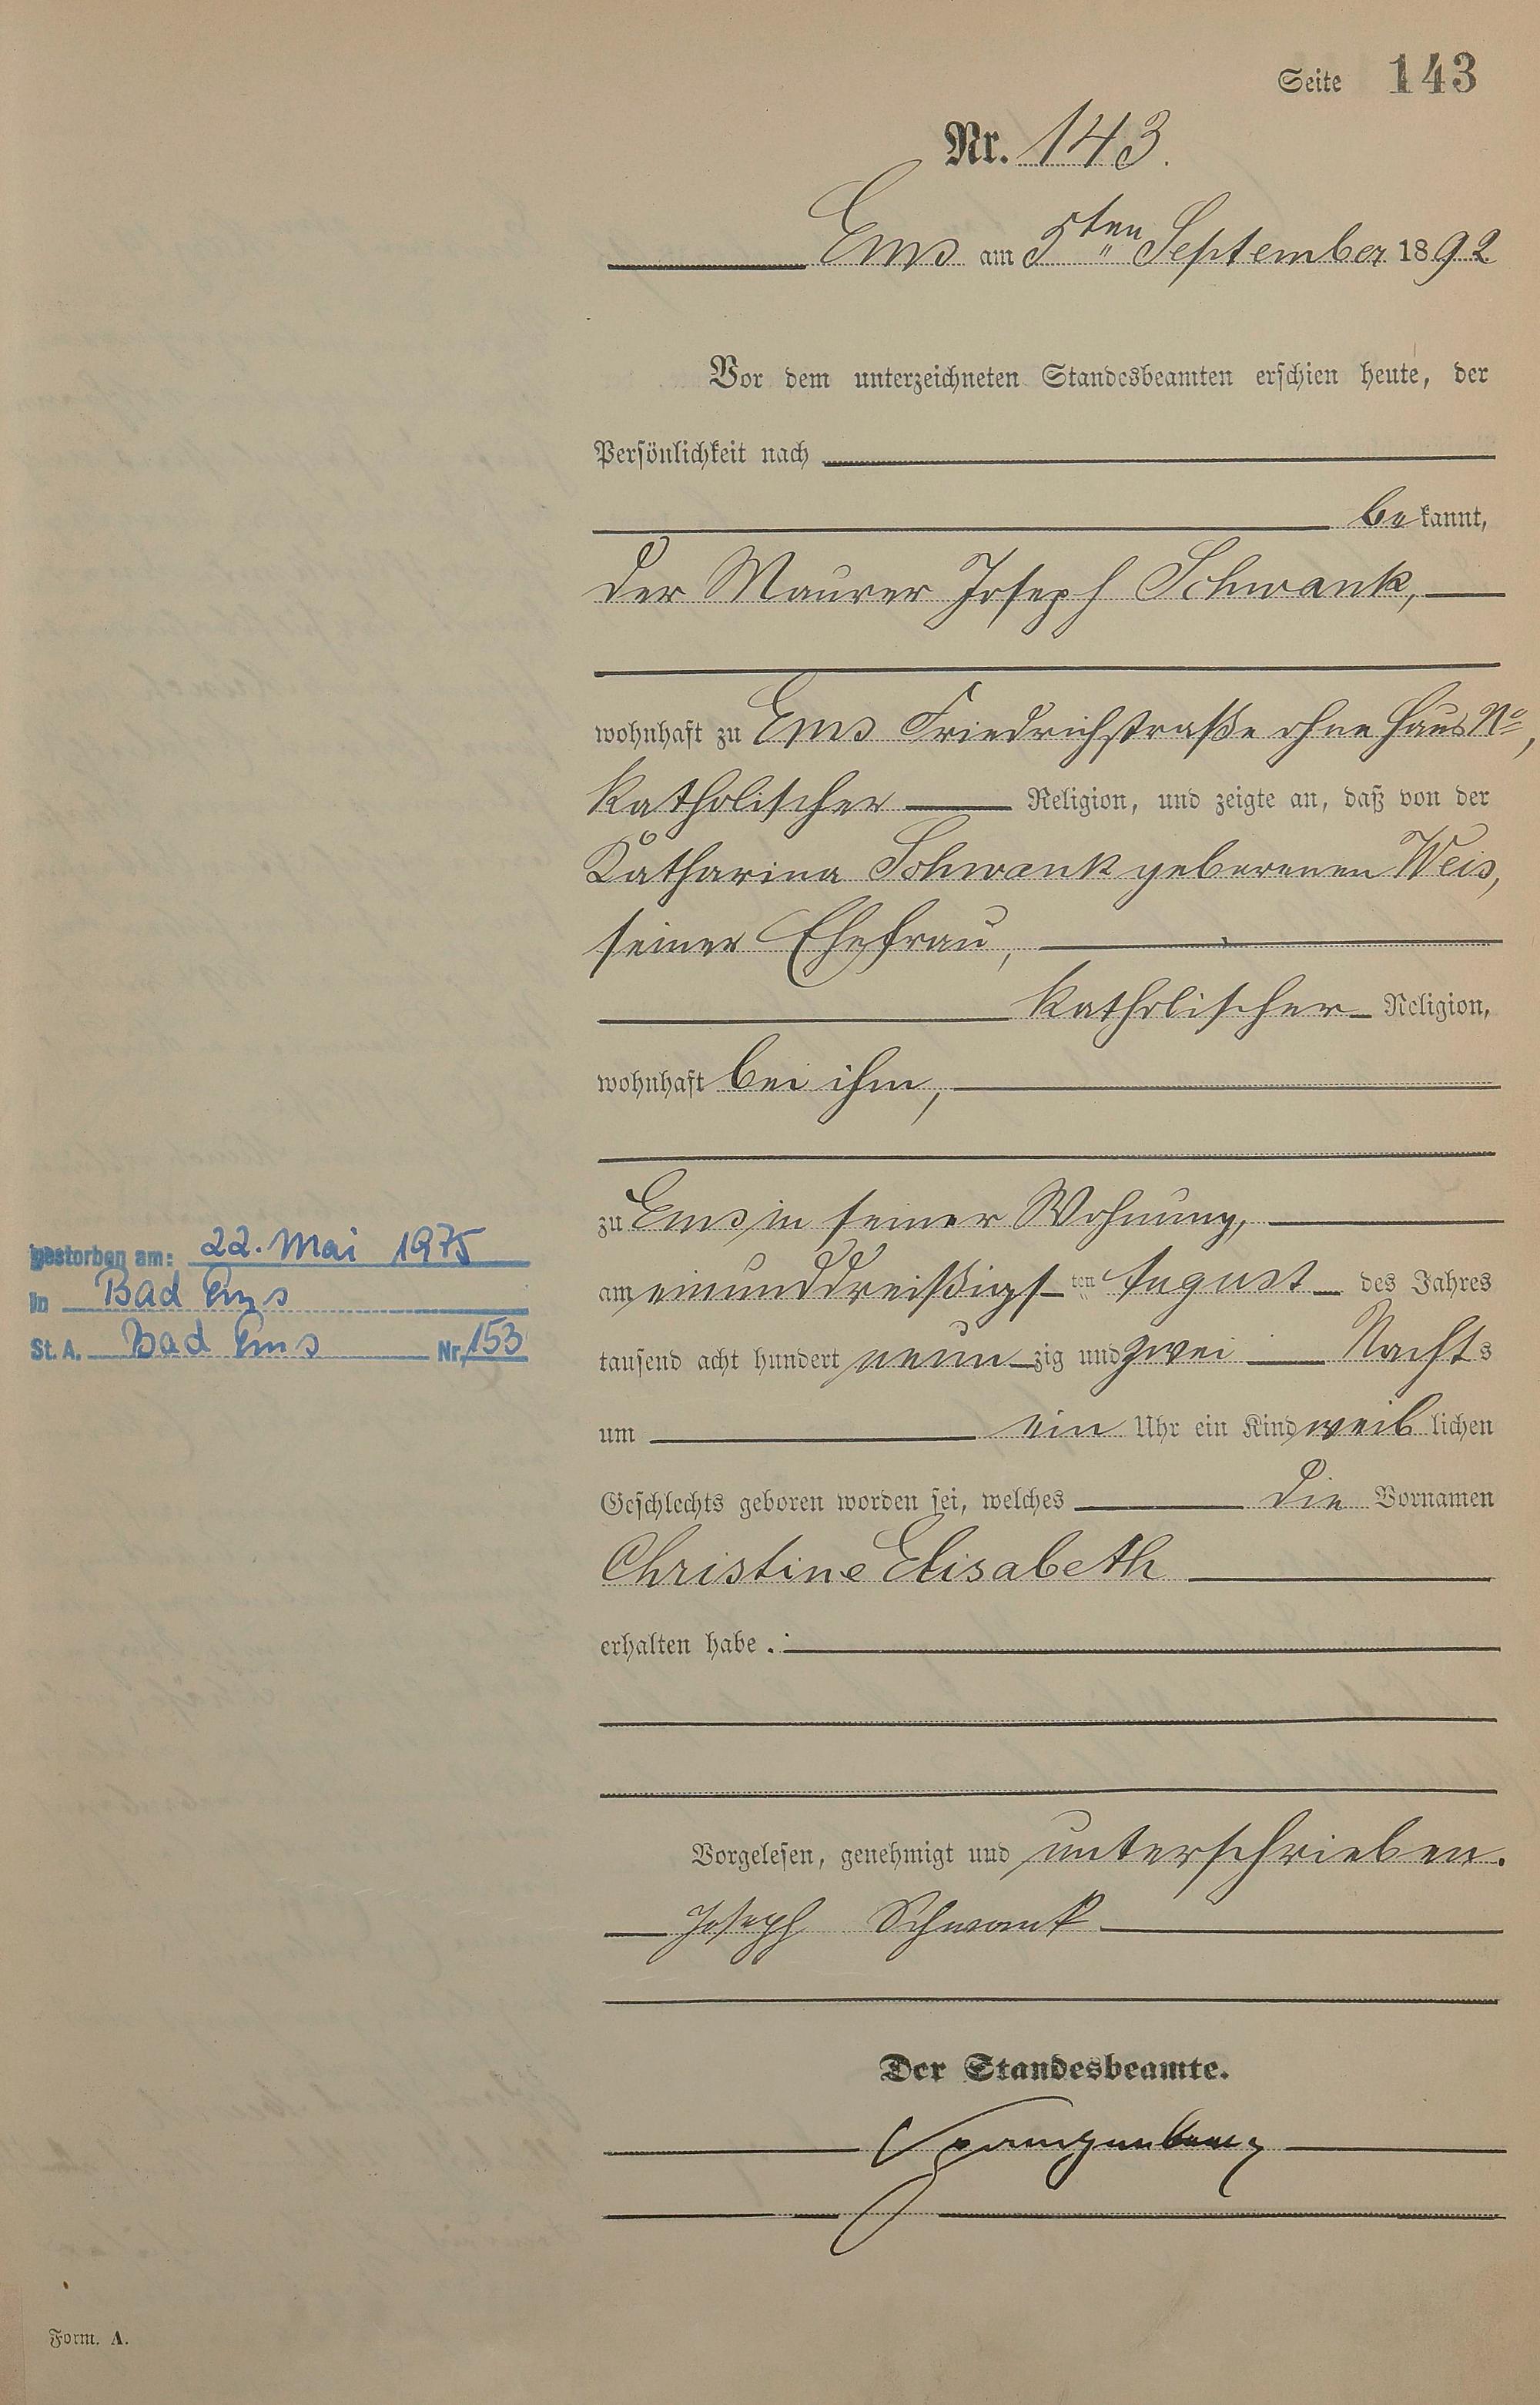 Seite 143
Nr. 143.
Ems am 5ten September 1892
Vor dem unterzeichneten Standesbeamten erschien heute, der
Persönlichkeit nach
bekannt,
der Maurer Joseph Schwank,
wohnhaft zu Ems Friedrichstraße ohne Haus No,
katholischer Religion, und zeigte an, daß von der
Katharina Schwank geborenen Weis,
seiner Ehefrau,
katholischer Religion,
wohnhaft bei ihm,
zu Ems in seiner Wohnung,
am einunddreißigsten August des Jahres
tausend acht hundert neunzig und zwei Nachts
um ein Uhr ein Kind weiblichen
Geschlechts geboren worden sei, welches die Vornamen
Christine Elisabeth
erhalten habe.
Vorgelesen, genehmigt und unterschrieben.
Joseph Schwank
Der Standesbeamte.
Spangenberg
gestorben am: 22. Mai 1975
in Bad Ems
St. A. Bad Ems Nr. 153
Form. A.